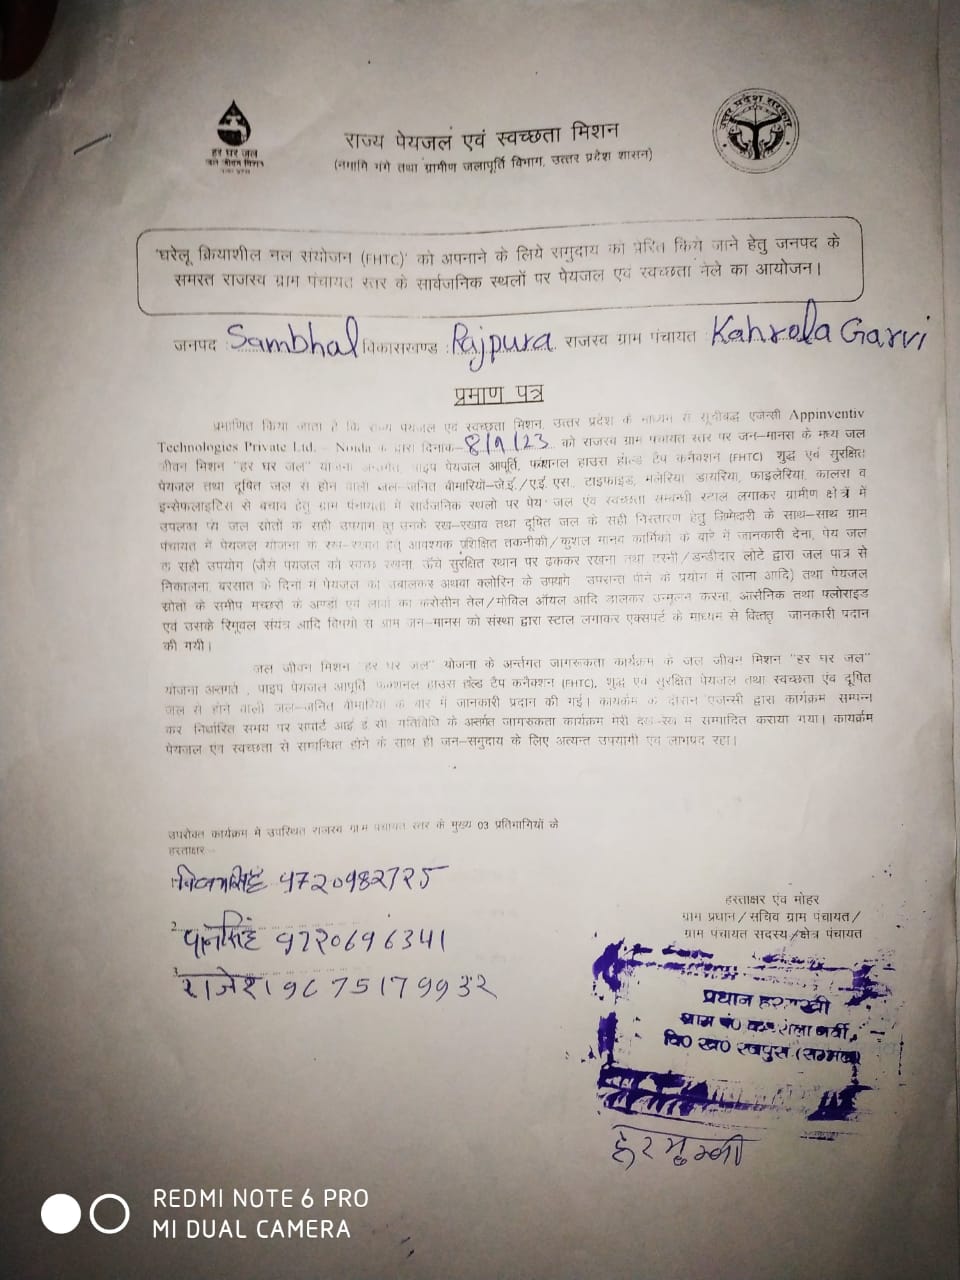 हर घर जल
जल जीवन मिशन
उत्तर प्रदेश सरकार
राज्य पेयजल एवं स्वच्छता मिशन
(नमामि गंगे तथा ग्रामीण जलापूर्ति विभाग, उत्तर प्रदेश शासन)
'घरेलू क्रियाशील नल संयोजन (FHTC)' को अपनाने के लिये समुदाय को प्रेरित किये जाने हेतु जनपद के
समस्त राजस्व ग्राम पंचायत स्तर के सार्वजनिक स्थलों पर पेयजल एवं स्वच्छता मेले का आयोजन।
जनपद : Sambhal विकासखण्ड : Rajpura राजस्व ग्राम पंचायत : Kahrola Garvi
प्रमाण पत्र
प्रमाणित किया जाता है कि राज्य पेयजल एवं स्वच्छता मिशन, उत्तर प्रदेश के माध्यम से सूचीबद्ध एजेन्सी Appinventiv
Technologies Private Ltd. – Noida के द्वारा दिनांक- 8/9/23 को राजस्व ग्राम पंचायत स्तर पर जन–मानस के मध्य जल
जीवन मिशन "हर घर जल" योजना अन्तर्गत, पाइप पेयजल आपूर्ति, फंक्शनल हाउस होल्ड टैप कनैक्शन (FHTC) शुद्ध एवं सुरक्षित
पेयजल तथा दूषित जल से होने वाली जल–जनित बीमारियों–जे.ई./ए.ई.एस., टाइफाइड, मलेरिया डायरिया, फाइलेरिया, कालरा व
इन्सेफलाइटिस से बचाव हेतु ग्राम पंचायतों में सार्वजनिक स्थलों पर पेय जल एंव स्वच्छता सम्बन्धी स्टाल लगाकर ग्रामीण क्षेत्रों में
उपलब्ध पेय जल स्रोतों के सही उपयोग एवं उनके रख–रखाव तथा दूषित जल के सही निस्तारण हेतु जिम्मेदारी के साथ–साथ ग्राम
पंचायत में पेयजल योजना के रख–रखाव हेतु आवश्यक प्रशिक्षित तकनीकी/कुशल मानव कार्मिकों के बारे में जानकारी देना, पेय जल
के सही उपयोग (जैसे पेयजल को स्वच्छ रखना, ऊँचे सुरक्षित स्थान पर ढककर रखना तथा टंटनी/डन्डीदार लोटे द्वारा जल पात्र से
निकालना, बरसात के दिनों में पेयजल को उबालकर अथवा क्लोरिन के उपयोग उपरान्त पीने के प्रयोग में लाना आदि) तथा पेयजल
स्रोतों के समीप मच्छरों के अण्डों एवं लार्वा का करोसीन तेल/मोविल ऑयल आदि डालकर उन्मूलन करना, आर्सेनिक तथा फ्लोराइड
एवं उसके रिमूवल संयंत्र आदि विषयों से ग्राम जन–मानस को संस्था द्वारा स्टाल लगाकर एक्सपर्ट के माध्यम से वित्तृत जानकारी प्रदान
की गयी।
जल जीवन मिशन "हर घर जल" योजना के अर्न्तगत जागरूकता कार्यक्रम के जल जीवन मिशन "हर घर जल"
योजना अन्तर्गत, पाइप पेयजल आपूर्ति फंक्शनल हाउस होल्ड टैप कनैक्शन (FHTC), शुद्ध एवं सुरक्षित पेयजल तथा स्वच्छता एंव दूषित
जल से होने वाली जल–जनित बीमारियों के बारे में जानकारी प्रदान की गई। कार्यक्रम के दौरान एजन्सी द्वारा कार्यक्रम सम्पन्न
कर निर्धारित समय पर सपोर्ट आई ई सी गतिविधि के अन्तर्गत जागरूकता कार्यक्रम मेरी देख–रेख में सम्पादित कराया गया। कार्यक्रम
पेयजल एवं स्वच्छता से सम्बन्धित होने के साथ ही जन–समुदाय के लिए अत्यन्त उपयोगी एवं लाभप्रद रहा।
उपरोक्त कार्यक्रम मे उपस्थित राजस्व ग्राम पंचायत स्तर के मुख्य 03 प्रतिभागियों के
हस्ताक्षर–
1. 9720982725
2. पानसिंह 9720696341
3. राजेश 9675179932
हस्ताक्षर एंव मोहर
ग्राम प्रधान/सचिव ग्राम पंचायत/
ग्राम पंचायत सदस्य/क्षेत्र पंचायत
प्रधान हरमुखी
ग्राम पं0 कहरोला गर्वी
वि0 ख0 रजपुरा (सम्भल)
हरमुखी
REDMI NOTE 6 PRO
MI DUAL CAMERA